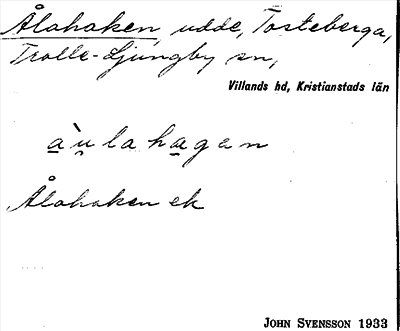 Ålahaken, udde, Tosteberga,
Trolle-Ljungby sn,
Villands hd, Kristianstads län
a̱`u̯ la ha̱gan
Ålahaken ek
JOHN SVENSSON 1933